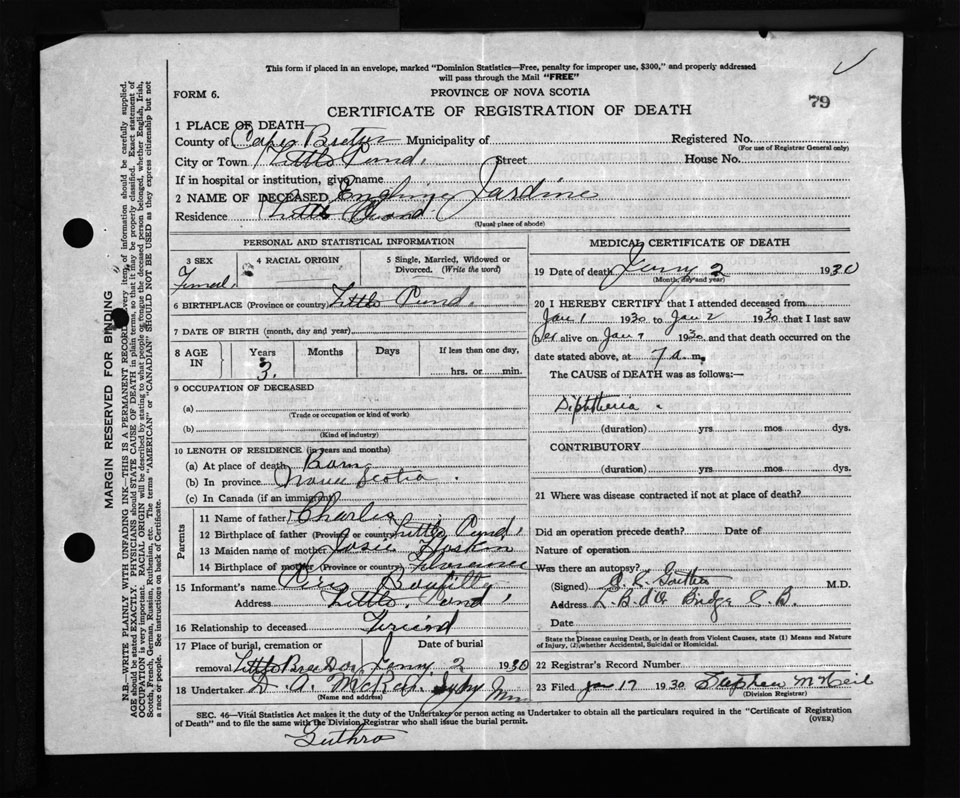 This form if placed in an envelope, marked "Dominion Statistics—Free, penalty for improper use, $300," and properly addressed
will pass through the Mail "FREE"
FORM 6.
PROVINCE OF NOVA SCOTIA
79
CERTIFICATE OF REGISTRATION OF DEATH
1 PLACE OF DEATH
County of Cape Breton Municipality of Registered No.
(For use of Registrar General only)
City or Town Little Pond. Street House No.
If in hospital or institution, give name
2 NAME OF DECEASED Jardine
Residence Little Pond
(Usual place of abode)
PERSONAL AND STATISTICAL INFORMATION
3 SEX
4 RACIAL ORIGIN
5 Single, Married, Widowed or
Divorced. (Write the word)
Femal.
6 BIRTHPLACE (Province or country) Little Pond.
7 DATE OF BIRTH (month, day and year)
8 AGE IN Years Months Days If less than one day,
3.
hrs. or min.
9 OCCUPATION OF DECEASED
(a)
(Trade or occupation or kind of work)
(b)
(Kind of industry)
10 LENGTH OF RESIDENCE (in years and months)
(a) At place of death Born
(b) In province Nova Scotia.
(c) In Canada (if an immigrant)
Parents
11 Name of father Charlie
12 Birthplace of father (Province or country) Little Pond
13 Maiden name of mother Josie
14 Birthplace of mother (Province or country) Florence
15 Informant's name
Address Little
16 Relationship to deceased Friend
17 Place of burial, cremation or Date of burial
removal Little Bras Dor 2 1930
18 Undertaker D. A. McRae. Sydny
(Name and address)
MEDICAL CERTIFICATE OF DEATH
19 Date of death 2 1930
(Month, day and year)
20 I HEREBY CERTIFY that I attended deceased from
Jan 1 1930 to Jan 2 1930 that I last saw
her alive on Jan 1930 and that death occurred on the
date stated above, at 7 a.m.
The CAUSE of DEATH was as follows:—
Diphtheria.
(duration) yrs mos dys.
CONTRIBUTORY
(duration) yrs mos dys.
21 Where was disease contracted if not at place of death?
Did an operation precede death? Date of
Nature of operation
Was there an autopsy?
(Signed) M.D.
Address L. B. d'O Bridge C. B.
Date
State the Disease causing Death, or in death from Violent Causes, state (1) Means and Nature
of Injury, (2) whether Accidental, Suicidal or Homicidal.
22 Registrar's Record Number
23 Filed Jan 17 1930 Stephen McNeil
(Division Registrar)
SEC. 46—Vital Statistics Act makes it the duty of the Undertaker or person acting as Undertaker to obtain all the particulars required in the "Certificate of Registration
of Death" and to file the same with the Division Registrar who shall issue the burial permit.
(OVER)
Guthro
MARGIN RESERVED FOR BINDING
N.B.—WRITE PLAINLY WITH UNFADING INK—THIS IS A PERMANENT RECORD. Every item of information should be carefully supplied.
AGE should be stated EXACTLY. PHYSICIANS should STATE CAUSE OF DEATH in plain terms, so that it may be properly classified. Exact statement of
OCCUPATION is very important. RACIAL ORIGIN will be described by stating to what people or tongue the deceased person belonged, whether English, Irish,
Scotch, French, German, Russian, Ruthenian, etc. The terms "AMERICAN" or "CANADIAN" SHOULD NOT BE USED as they express citizenship but not
a race or people. See instructions on back of Certificate.